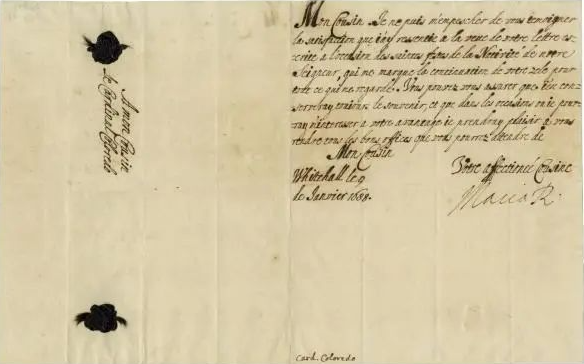 Mon Cousin. Je ne puis m'empescher de vous tesmoigner
la satisfaction que j'ay ressentie a la veue de vostre lettre es-
crite a l'occasion des saintes festes de la Nativité de nostre
Seigneur, qui me marque la continuation de vostre zele pour
tout ce qui me regarde. Vous pouvez vous assurer que j'en con-
serveray tousiours le souvenir, et que dans les occasions ou je pour-
ray m'interesser a vostre avantage je prendray plaisir a vous
rendre tous les bons offices que vous pourrez attendre de
Mon Cousin
Vostre affectionée Cousine
Whitehall le 9
de Janvier 1688.
Maria R.
A mon Cousin
le Cardinal Coloredo
Card. Coloredo